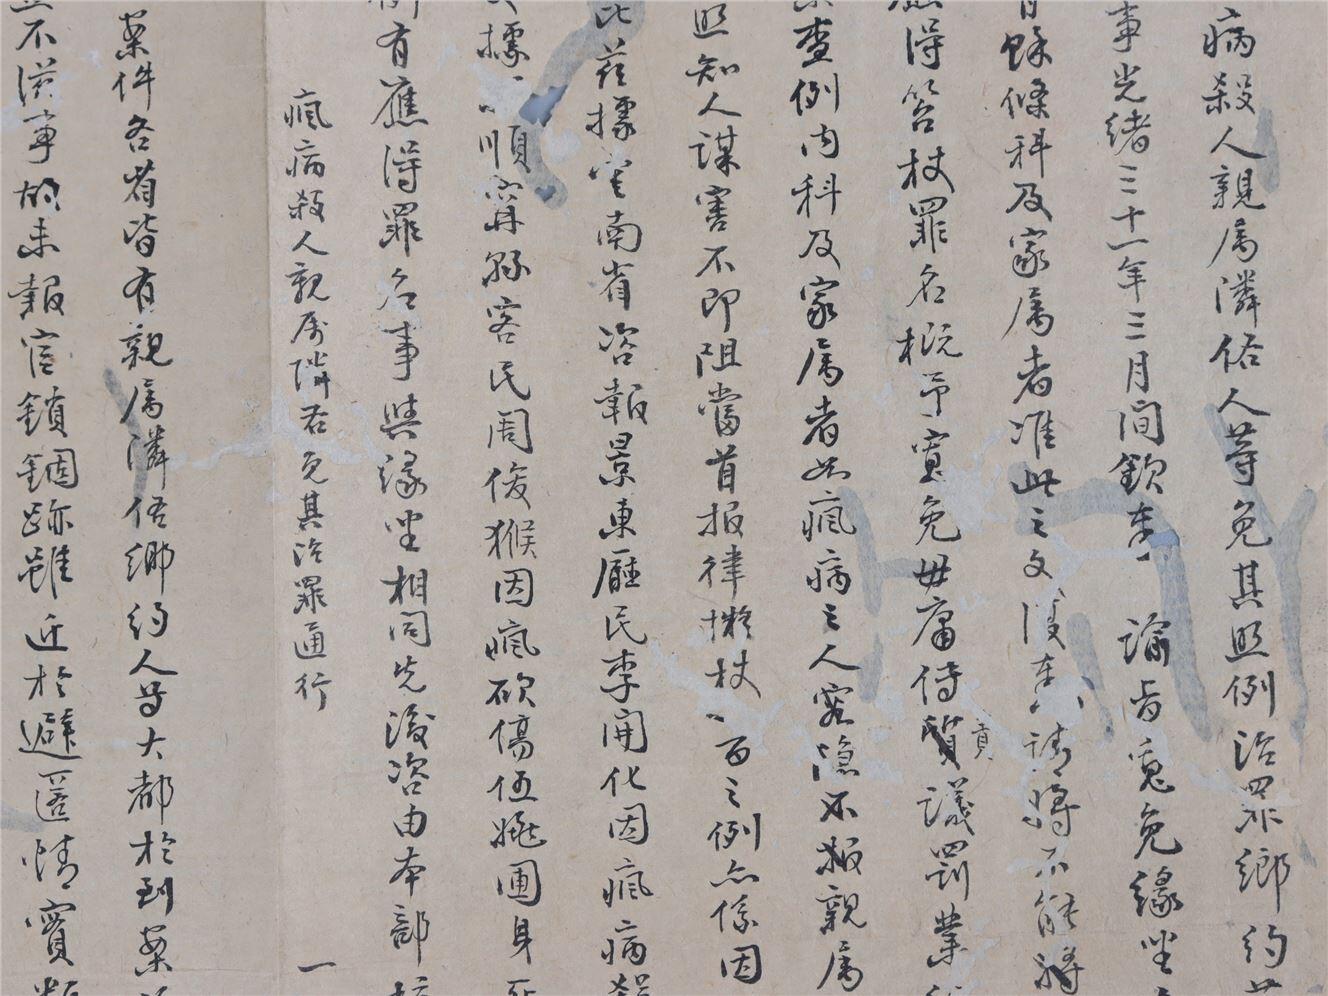 病殺人親属隣佑人等免其照例治罪鄉約
事光緒三十一年三月间欽奉諭旨寬免緣坐
餘條科及家属者准此之文復奉請將不能將
得笞杖罪名概予寬免毋庸傳質議罰業
責
查例内科及家属者如瘋病之人容隐不报親属
照知人謀害不即阻當首报律擬杖一百之例亦係因
茲據雲南省咨報景東廳民李開化因瘋病殺
據順寧縣客民周俊猴因瘋砍傷伍嬎圃身死
有應得罪名事與緣坐相同先後咨由本部
瘋病殺人親属隣右免其治罪通行
一
案件各省皆有親属隣佑鄉約人等大都於到案
不滋事故未報官鎖錮跡雖近於避匿情實